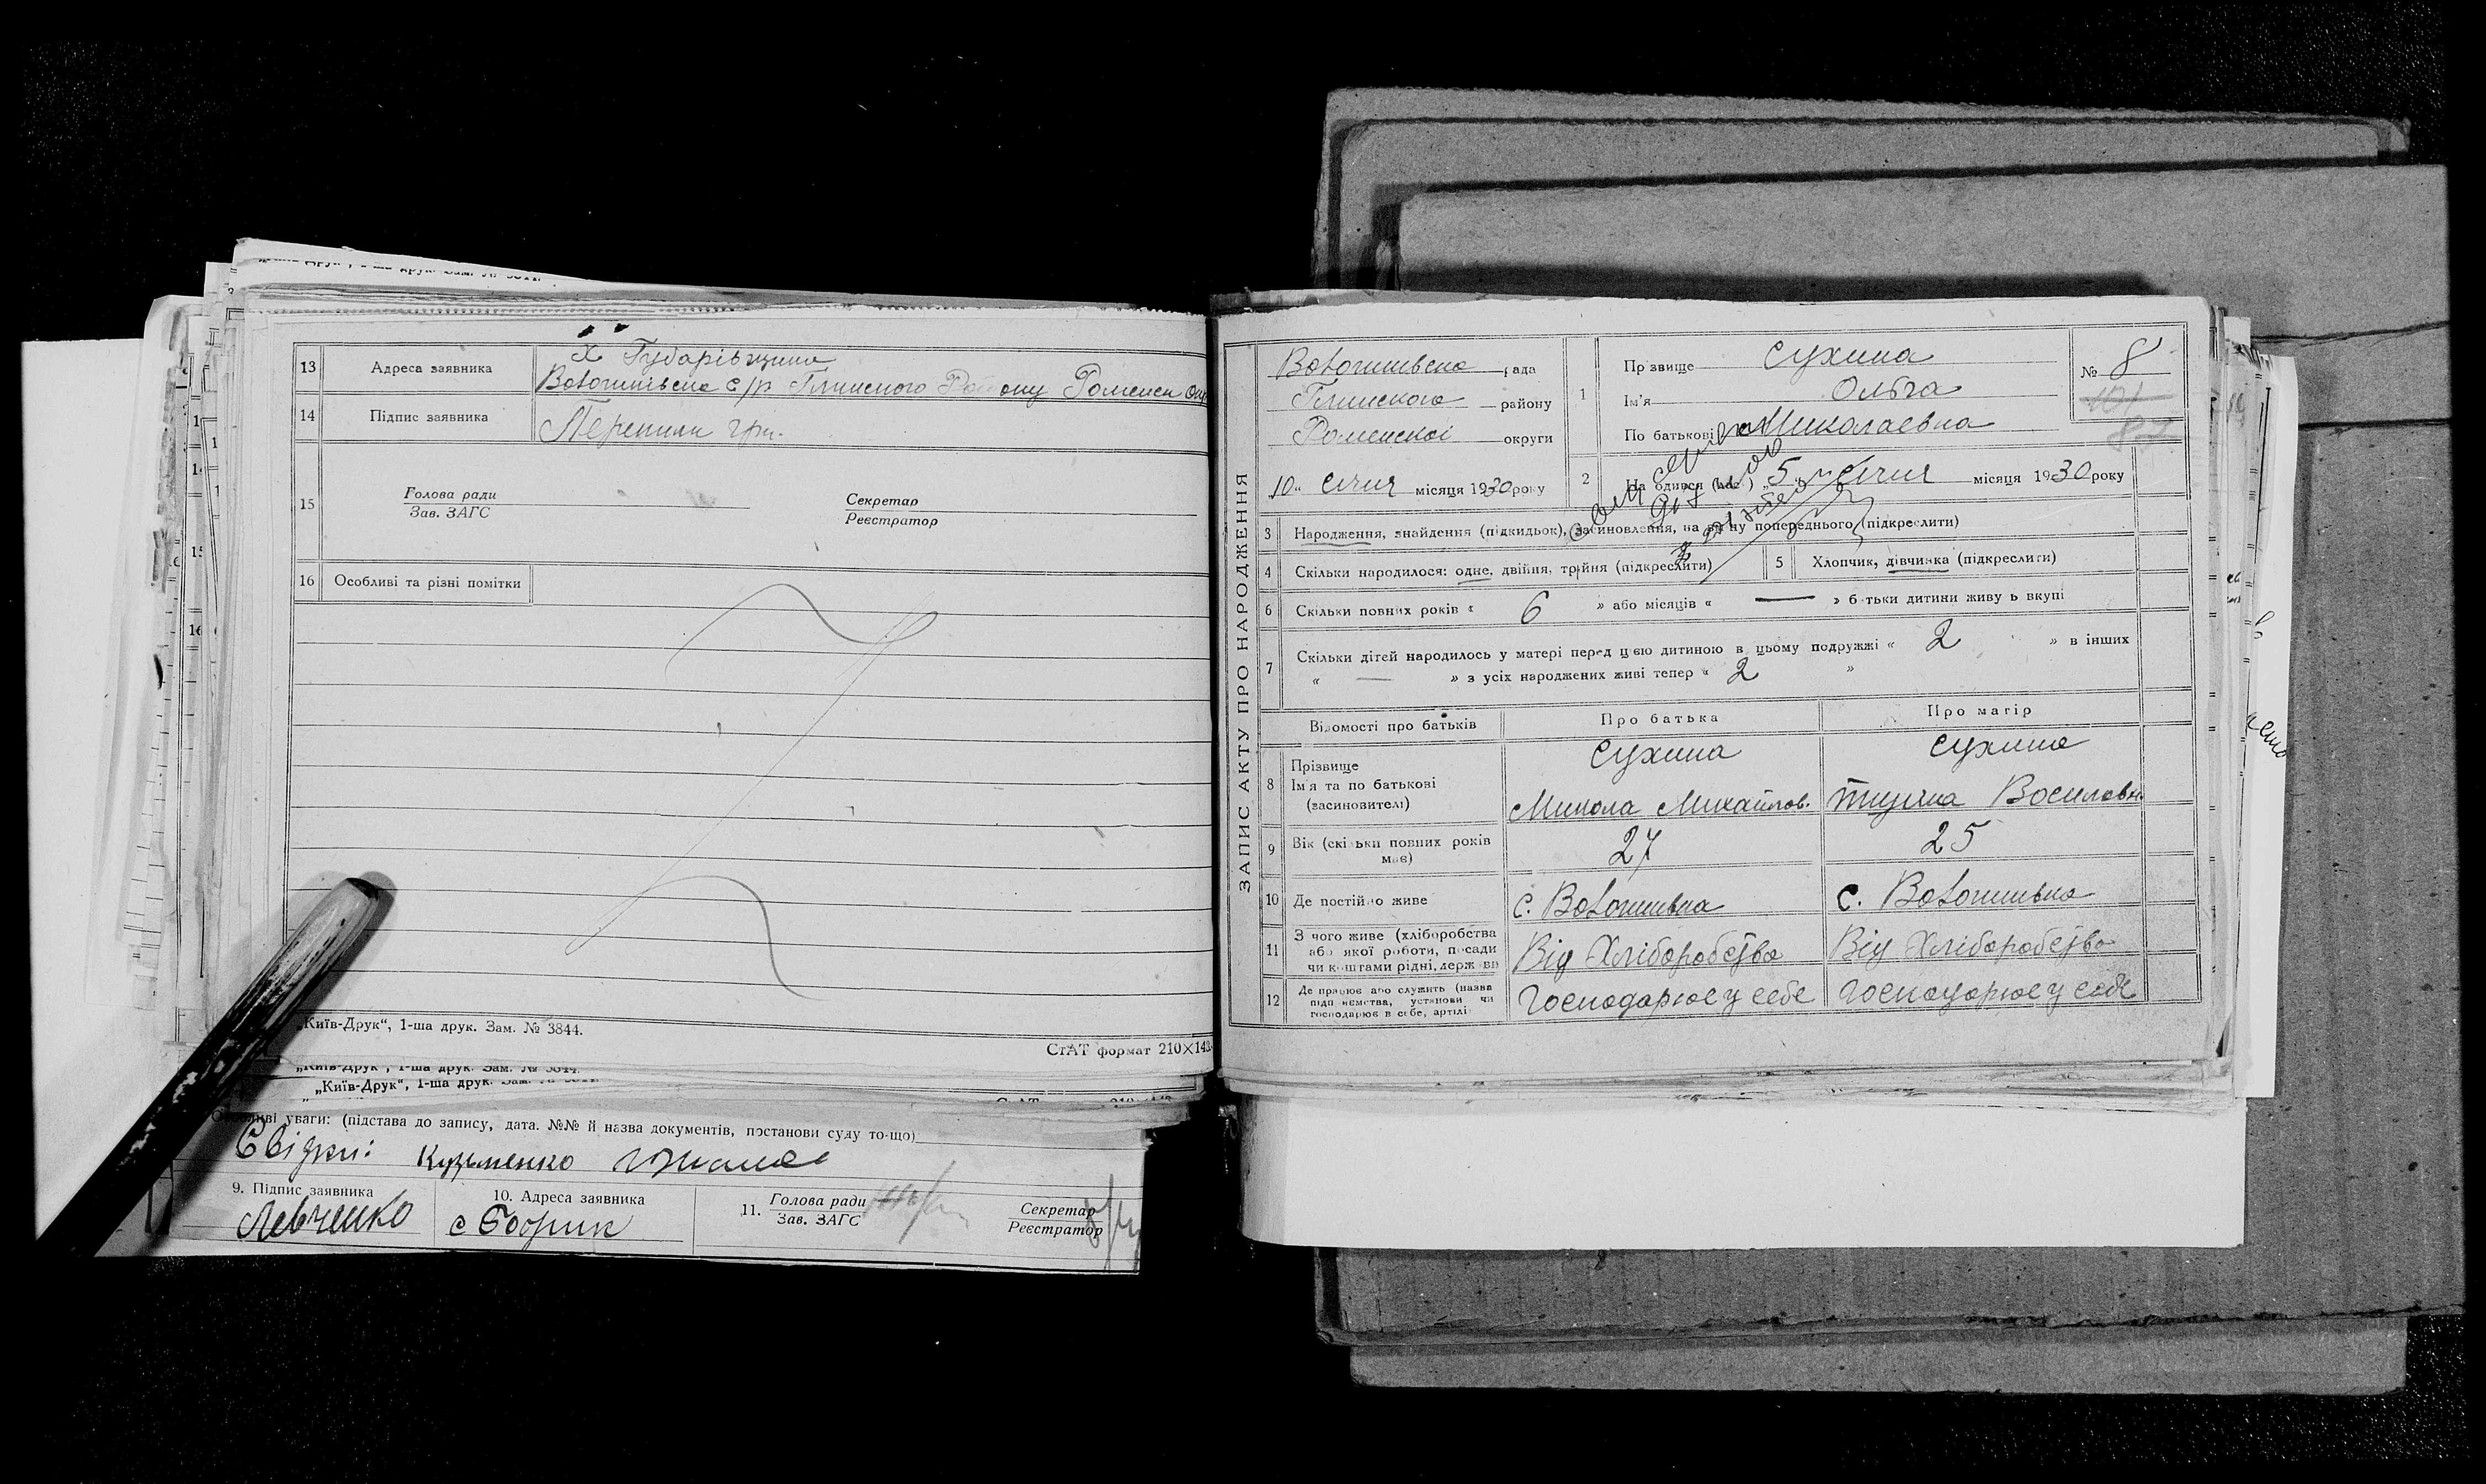 13 Адреса заявника х Губарівщина
Волошнівська с/р Глинского Району Роменськ Окр
14 Підпис заявника Перепили гр.
15 Голова ради
Зав. ЗАГС
Секретар
Реєстратор
16 Особливі та різні помітки
„Київ-Друк“, 1-ша друк. Зам. № 3844.
СтАТ формат 210×143
„Київ-Друк“, 1-ша друк. Зам. № 3844.
„Київ-Друк“, 1-ша друк. Зам.
уваги: (підстава до запису, дата. №№ й назва документів, постанови суду то-що)
Свідки: Кузьменко
9. Підпис заявника
Левченко
10. Адреса заявника
с Бобрик
11. Голова ради
Зав. ЗАГС
Секретар
Реєстратор
ЗАПИС АКТУ ПРО НАРОДЖЕННЯ
Волошнівська рада
Глинского району
Роменскої округи
10 Січня місяця 1930 року
1 Прізвище Сухина
Ім'я Ольга
По батькові Миколаевна
№ 8
87
2 Народився (лась) „5“ Січня місяця 1930 року
3 Народження, знайдення (підкидьок), засиновлення, на зміну попереднього (підкреслити)
4 Скільки народилося: одне, двійня, трійня (підкреслити)
5 Хлопчик, дівчинка (підкреслити)
6 Скільки повних років « 6 » або місяців « — » батьки дитини живуть вкупі
7 Скільки дітей народилось у матері перед цією дитиною в цьому подружжі « 2 » в інших
« — » з усіх народжених живі тепер « 2 »
Відомості про батьків Про батька Про матір
8 Прізвище Сухина Сухина
Ім'я та по батькові Микола Михайлов. Василовн.
(засиновителі)
9 Вік (скільки повних років має) 27 25
10 Де постійно живе с. Волошнівка с. Волошнівка
11 З чого живе (хліборобства
або якої роботи, посади
чи коштами рідні, держави Від Хліборобства Від Хліборобства
12 Де працює або служить (назва
підприємства, установи чи
господарює в себе, артілі Господарює у себе Господарює у себе